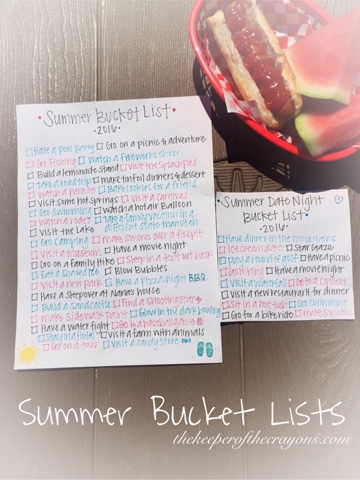 Summer Bucket List
•2016•
□ Have a pool party □ Go on a picnic & adventure
□ Go Fishing □ Watch a fireworks show
□ Build a lemonade stand □ Visit the splashpad
□ Take a road trip □ make tinfoil dinners & dessert
□ Watch a parade □ Bake cookies for a friend
□ Visit some hot springs □ Visit a Carnival
□ Go Swimming □ Watch a hot air Balloon
□ Watch a rodeo □ Take a family vacation in a
□ Visit the Lake different state than Utah
□ Go Camping □ make Smores over a firepit
□ Visit a museum □ Have a movie night
□ Go on a Family Hike □ Sleep in a tent out back
□ Get a Shaved Ice □ Blow Bubbles
□ Visit a new park □ Have a pizza night BBQ
□ Have a Sleepover at Nana's house
□ Build a Sandcastle □ Find a Shooting Star
□ make Sidewalk paint □ Glow in the dark bowling
□ Have a water fight □ Go to a baseball game
□ Stay in a hotel □ Visit a farm with animals
□ Go on a tour □ Visit a candy store
Summer Date Night
Bucket List
•2016•
□ Have dinner in the mountains
□ Ice cream date □ Star Gaze
□ Play a round of golf □ Have a picnic
□ Go Hiking □ Have a movie night
□ Visit a waterfall □ Go to a concert
□ Visit a new restaurant for dinner
□ Sit in a hot tub □ Go Swimming
□ Go for a bike ride □ make Smores
Summer Bucket Lists
thekeeperofthecrayons.com